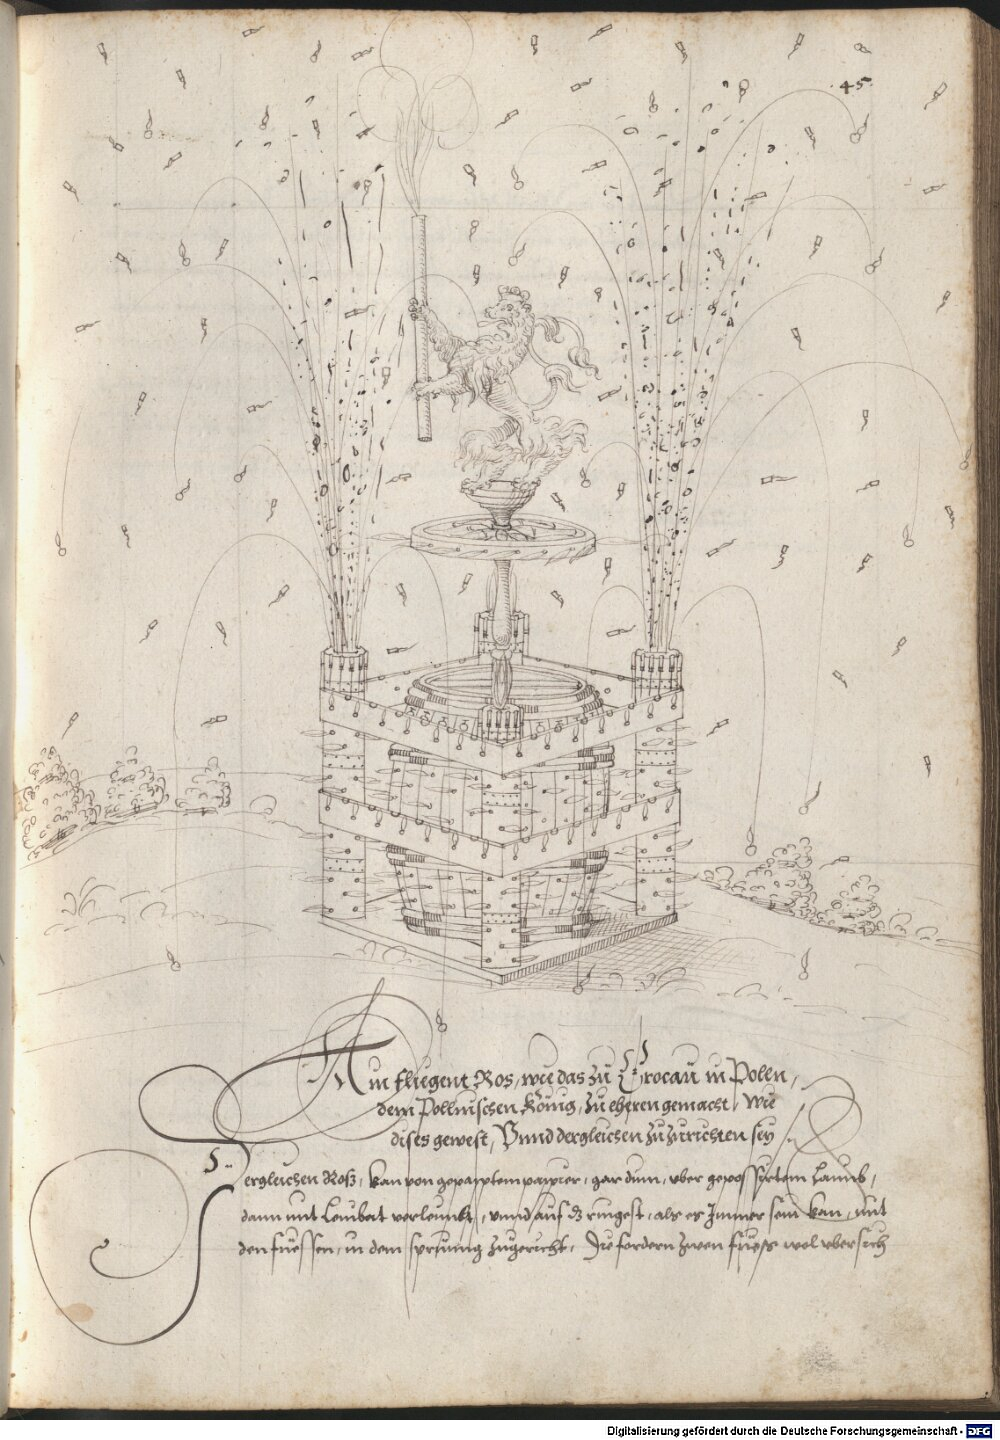 ·45·
Ain fliegent Ros, wie das zů Crocaü in Polen,
dem Pollnischen Könnig, zů eheren gemacht, wie
dises gewest, Vnnd dergleichen zů zůrichten sey
Dergleichen Roß, kan von gepapptem pappier, gar dünn, vber gepossiertem
dann mit verleimbt, vnnd aufs ringest, als es Immer sein kan, mit
den fuessen, in dem sprunng zůgericht, Die fordern zwen fuess wol vbersich
Digitalisierung gefördert durch die Deutsche Forschungsgemeinschaft - DFG